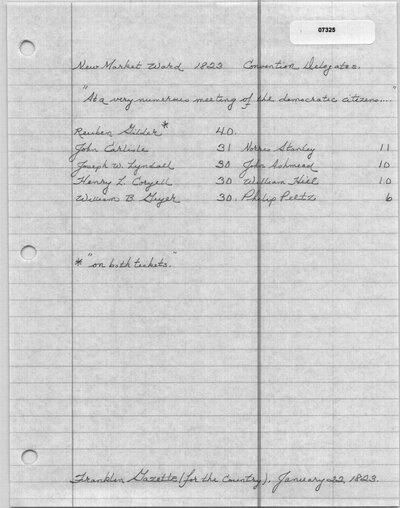 07325
New Market Ward 1823 Convention Delegates.
"At a very numerous meeting of the democratic citizens...."
Reuben Gilder* 40.
John Carlisle 31 Norris Stanley 11
Joseph W. Lyndall 30 John Ashmead 10
Henry L. Coryell 30 William Hiel 10
William B. Geyer 30. Philip Peltz 6
* "on both tickets."
Franklin Gazette (for the Country). January 22, 1823.